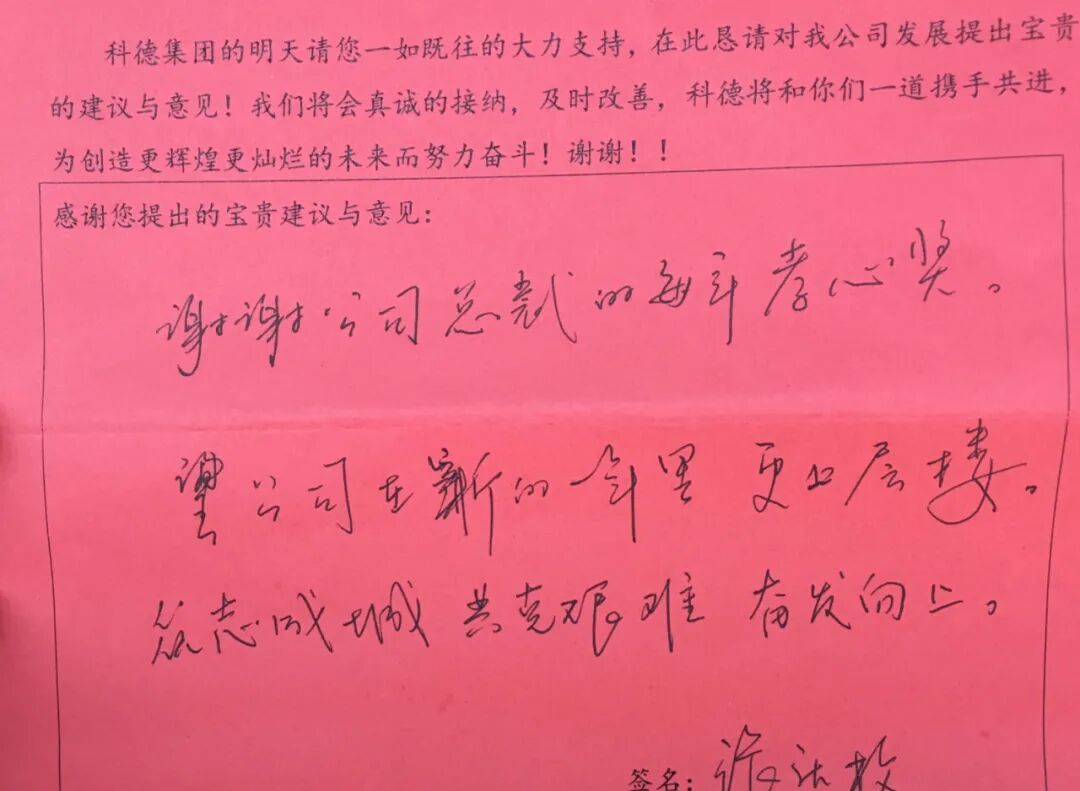 科德集团的明天请您一如既往的大力支持，在此恳请对我公司发展提出宝贵
的建议与意见！我们将会真诚的接纳，及时改善，科德将和你们一道携手共进，
为创造更辉煌更灿烂的未来而努力奋斗！谢谢！！
感谢您提出的宝贵建议与意见：
谢谢公司总裁的每年孝心奖。
望公司在新的年里 更上层楼。
众志成城 共克艰难 奋发向上。
签名：